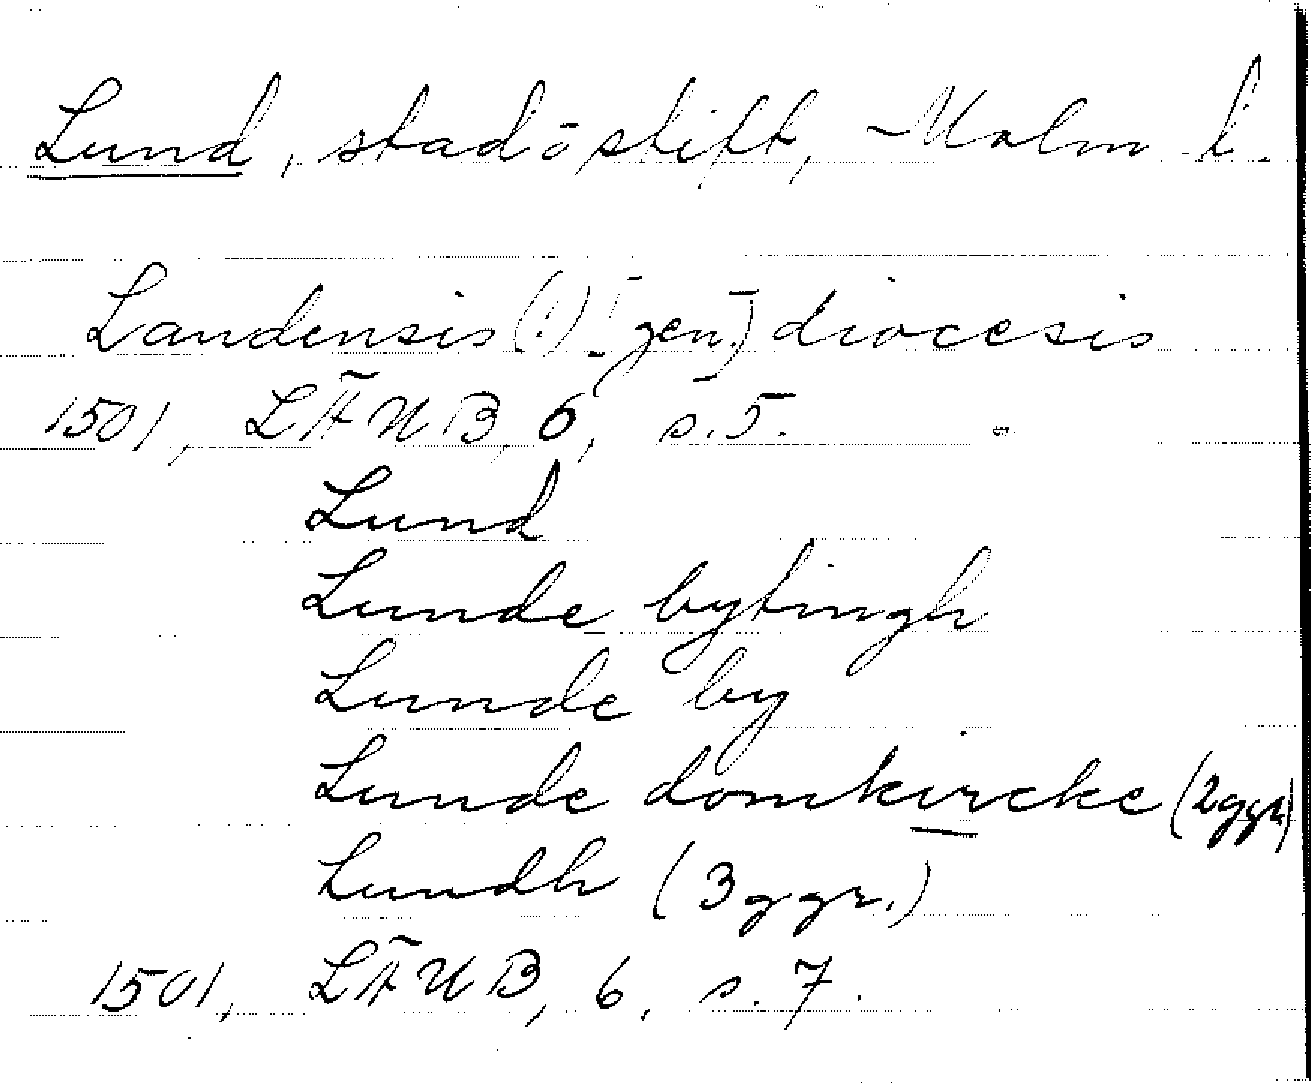 Lund, stad o stift, Malm l.
Landensis (!) [gen.] diocesis
1501, LÄUB, 6, s. 5.
Lund
Lunde bytingh
Lunde by
Lunde domkircke (2ggr)
Lundh (3 ggr.)
1501, LÄUB, 6, s. 7.